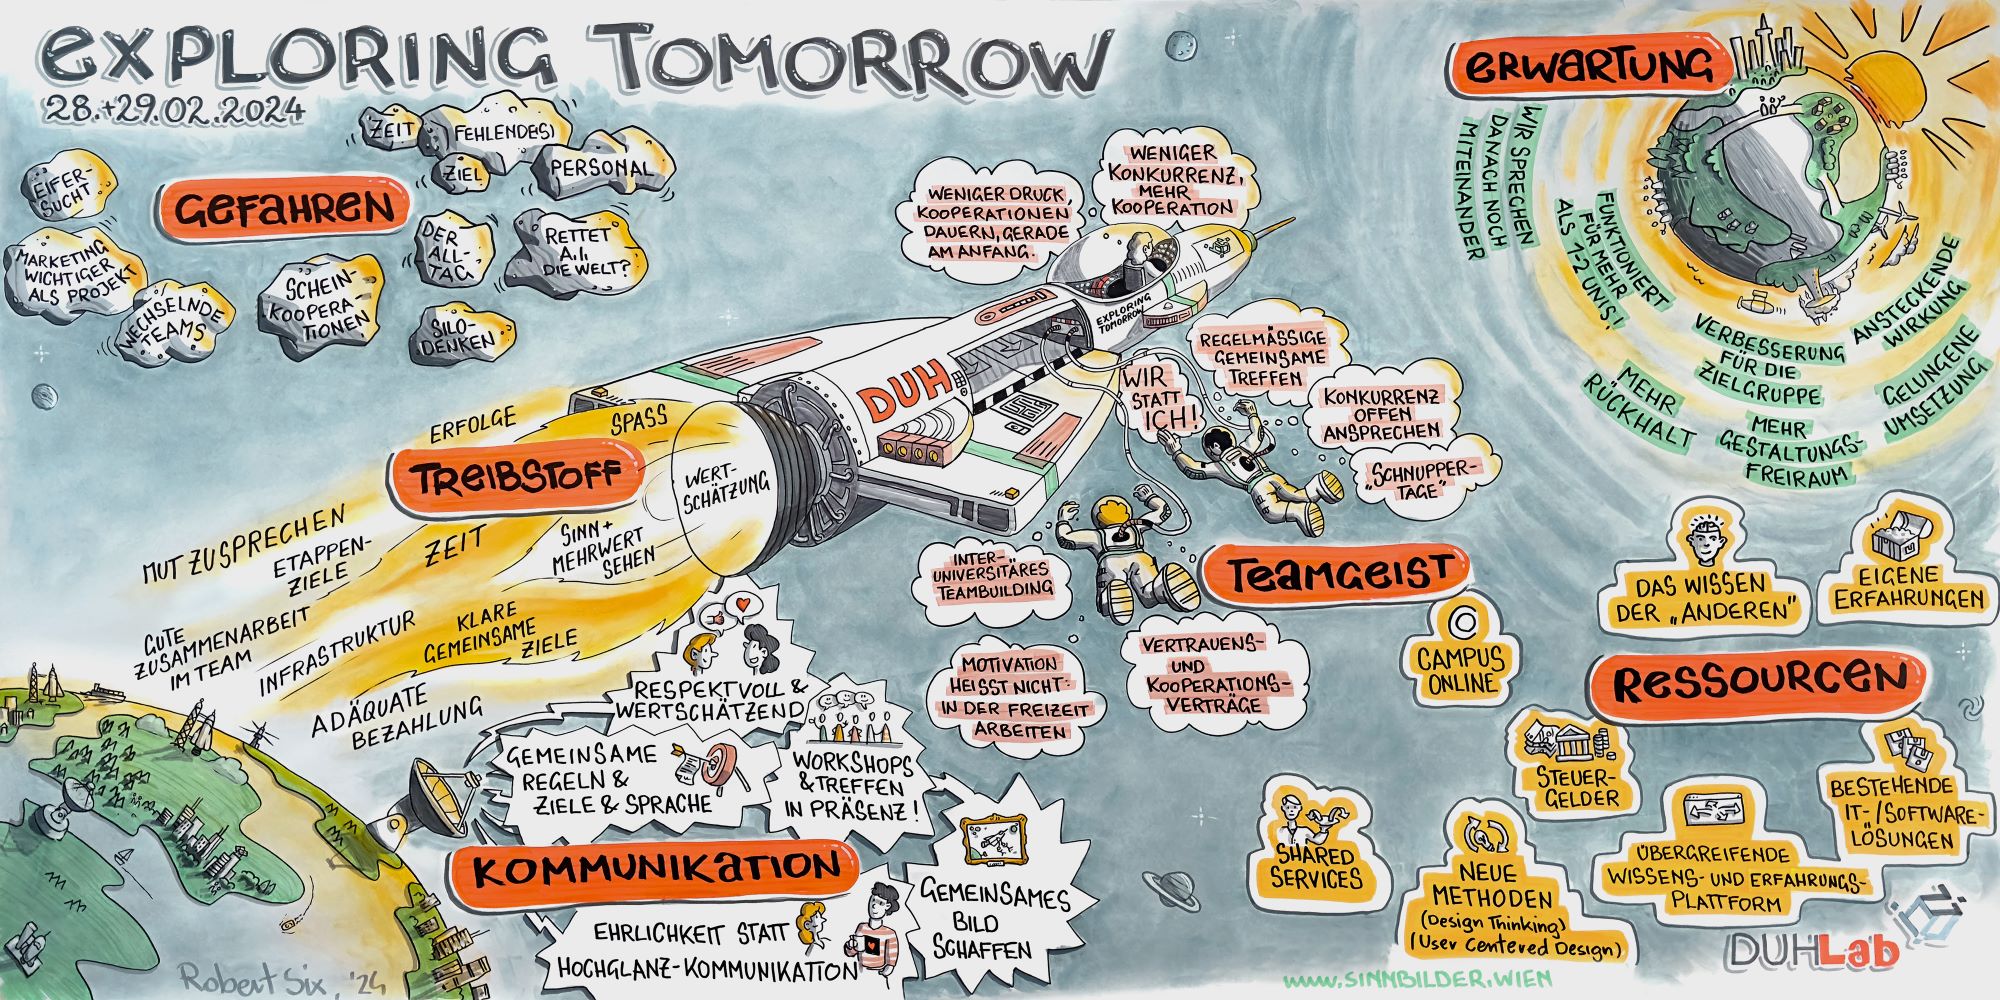 EXPLORING TOMORROW
28.+29.02.2024
GEFAHREN
EIFER-
SUCHT
MARKETING
WICHTIGER
ALS PROJEKT
WECHSELNDE
TEAMS
SCHEIN-
KOOPERA-
TIONEN
ZEIT
FEHLENDE(S)
ZIEL
PERSONAL
DER
ALL-
TAG
RETTET
A.I.
DIE WELT?
SILO-
DENKEN
WENIGER DRUCK,
KOOPERATIONEN
DAUERN, GERADE
AM ANFANG.
WENIGER
KONKURRENZ,
MEHR
KOOPERATION
EXPLORING
TOMORROW
DUH
TREIBSTOFF
ERFOLGE
SPASS
WERT-
SCHÄTZUNG
MUT ZUSPRECHEN
ETAPPEN-
ZIELE
ZEIT
SINN +
MEHRWERT
SEHEN
GUTE
ZUSAMMENARBEIT
IM TEAM
INFRASTRUKTUR
KLARE
GEMEINSAME
ZIELE
ADÄQUATE
BEZAHLUNG
TEAMGEIST
WIR
STATT
ICH!
REGELMÄSSIGE
GEMEINSAME
TREFFEN
KONKURRENZ
OFFEN
ANSPRECHEN
"SCHNUPPER-
TAGE"
INTER-
UNIVERSITÄRES
TEAMBUILDING
MOTIVATION
HEISST NICHT
IN DER FREIZEIT
ARBEITEN
VERTRAUENS-
UND
KOOPERATIONS-
VERTRÄGE
ERWARTUNG
WIR SPRECHEN
DANACH NOCH
MITEINANDER
FUNKTIONIERT
FÜR MEHR
ALS 1-2 UNIS!
MEHR
RÜCKHALT
VERBESSERUNG
FÜR DIE
ZIELGRUPPE
MEHR
GESTALTUNGS-
FREIRAUM
ANSTECKENDE
WIRKUNG
GELUNGENE
UMSETZUNG
RESSOURCEN
DAS WISSEN
DER „ANDEREN"
EIGENE
ERFAHRUNGEN
CAMPUS
ONLINE
STEUER-
GELDER
BESTEHENDE
IT-/SOFTWARE-
LÖSUNGEN
SHARED
SERVICES
NEUE
METHODEN
(Design Thinking)
(User Centered Design)
ÜBERGREIFENDE
WISSENS- UND ERFAHRUNGS-
PLATTFORM
KOMMUNIKATION
RESPEKTVOLL &
WERTSCHÄTZEND
GEMEINSAME
REGELN &
ZIELE & SPRACHE
WORKSHOPS
& TREFFEN
IN PRÄSENZ!
GEMEINSAMES
BILD
SCHAFFEN
EHRLICHKEIT STATT
HOCHGLANZ-KOMMUNIKATION
Robert Six, '24
www.SINNBILDER.WIEN
DUHLab